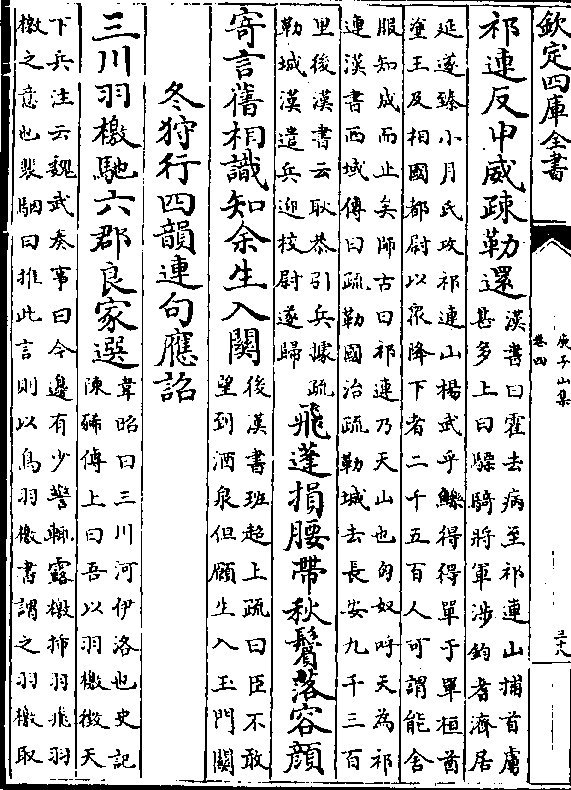 欽定四庫全書
庾子山集
卷四
祁連反中威疎勒還
漢書曰霍去病至祁連山捕首虜
甚多上曰驃騎將軍涉鈞耆濟居
延遂臻小月氏攻祁連山楊武乎鱳得得單于單桓酋
塗王及相國都尉以衆降下者二千五百人可謂能舍
服知成而止矣師古曰祁連乃天山也匈奴呼天為祁
連漢書西域傳曰疏勒國治疏勒城去長安九千三百
里後漢書云耿恭引兵據疏
勒城漢遣兵迎校尉遂歸
飛蓬損腰帶秋鬢落容顔
寄言舊相識知余生入關
後漢書班超上疏曰臣不敢
望到酒泉但願生入玉門關
冬狩行四韻連句應詔
三川羽檄馳六郡良家選
韋昭曰三川河伊洛也史記
陳豨傳上曰吾以羽檄徴天
下兵注云魏武奏事曰今邊有少警輒露檄揷羽飛羽
檄之意也裴駰曰推此言則以鳥羽檄書謂之羽檄取